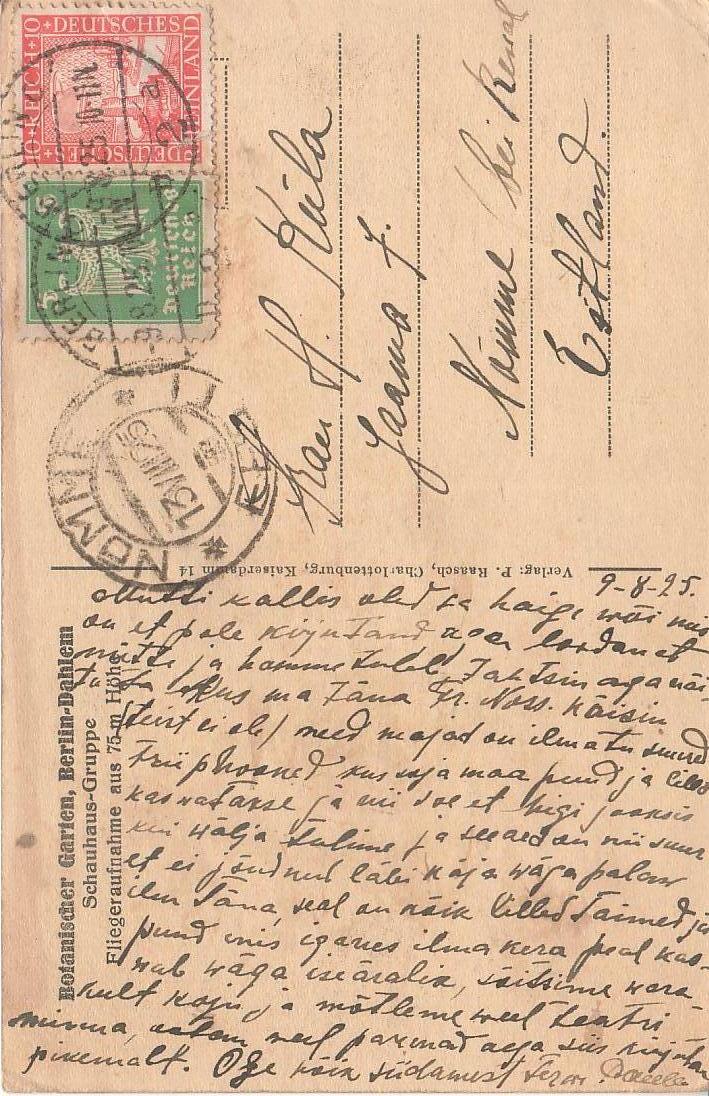 DEUTSCHES REICH
Deutsches Reich
BERLIN
NÕMME
13 VIII 25
Frau H. Küla
Jaama 7.
Nömme bei Reval
Estland.
Verlag: P. Raasch, Charlottenburg, Kaiserdamm 14
Botanischer Garten, Berlin-Dahlem
Schauhaus-Gruppe
Fliegeraufnahme aus 75 m Höhe
9-8-25.
Mutti kallis oled sa haige wõi mis
on et pole kirjutand
mitte ja homme tuleb Tahtsin aga näi-
kus ma täna Fr. Noss. käisin
(teist ei ole) need majad on ilmatu suured
triiphooned kus sooja maa puud ja lilled
kaswatakse ja nii soe et higi jooksis
kui wälja tulime ja see aed on nii suur
et ei jõudnud läbi käia wäga palaw
ilm täna, seal on kõik lilled taimed ja
puud mis iganes ilma kera peal kas-
wab wäga iseäralik, sõitsime wara
koju ja mõtleme weel teatri
minna, weel paremad aega siis kirjutan
pikemalt. Olge kõik südamest terw.